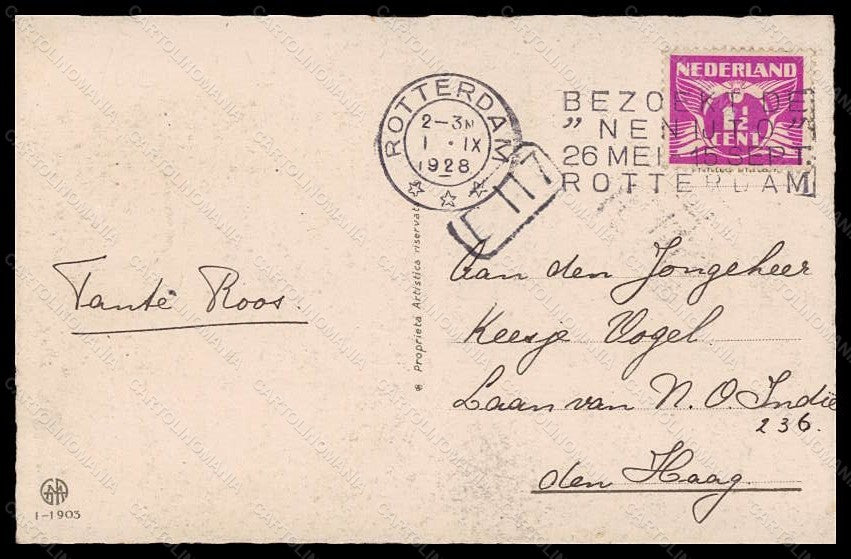 NEDERLAND
1 1/2
CENT
ROTTERDAM
2-3N
1 · IX
1928
BEZOEKT DE
„NENIJTO"
26 MEI 15 SEPT.
ROTTERDAM
Tante Roos.
Aan den Jongeheer
Keesje Vogel
Laan van N. O. Indië
236.
den Haag.
Proprietà Artistica riservata
1-1903
CARTOLINOMANIA